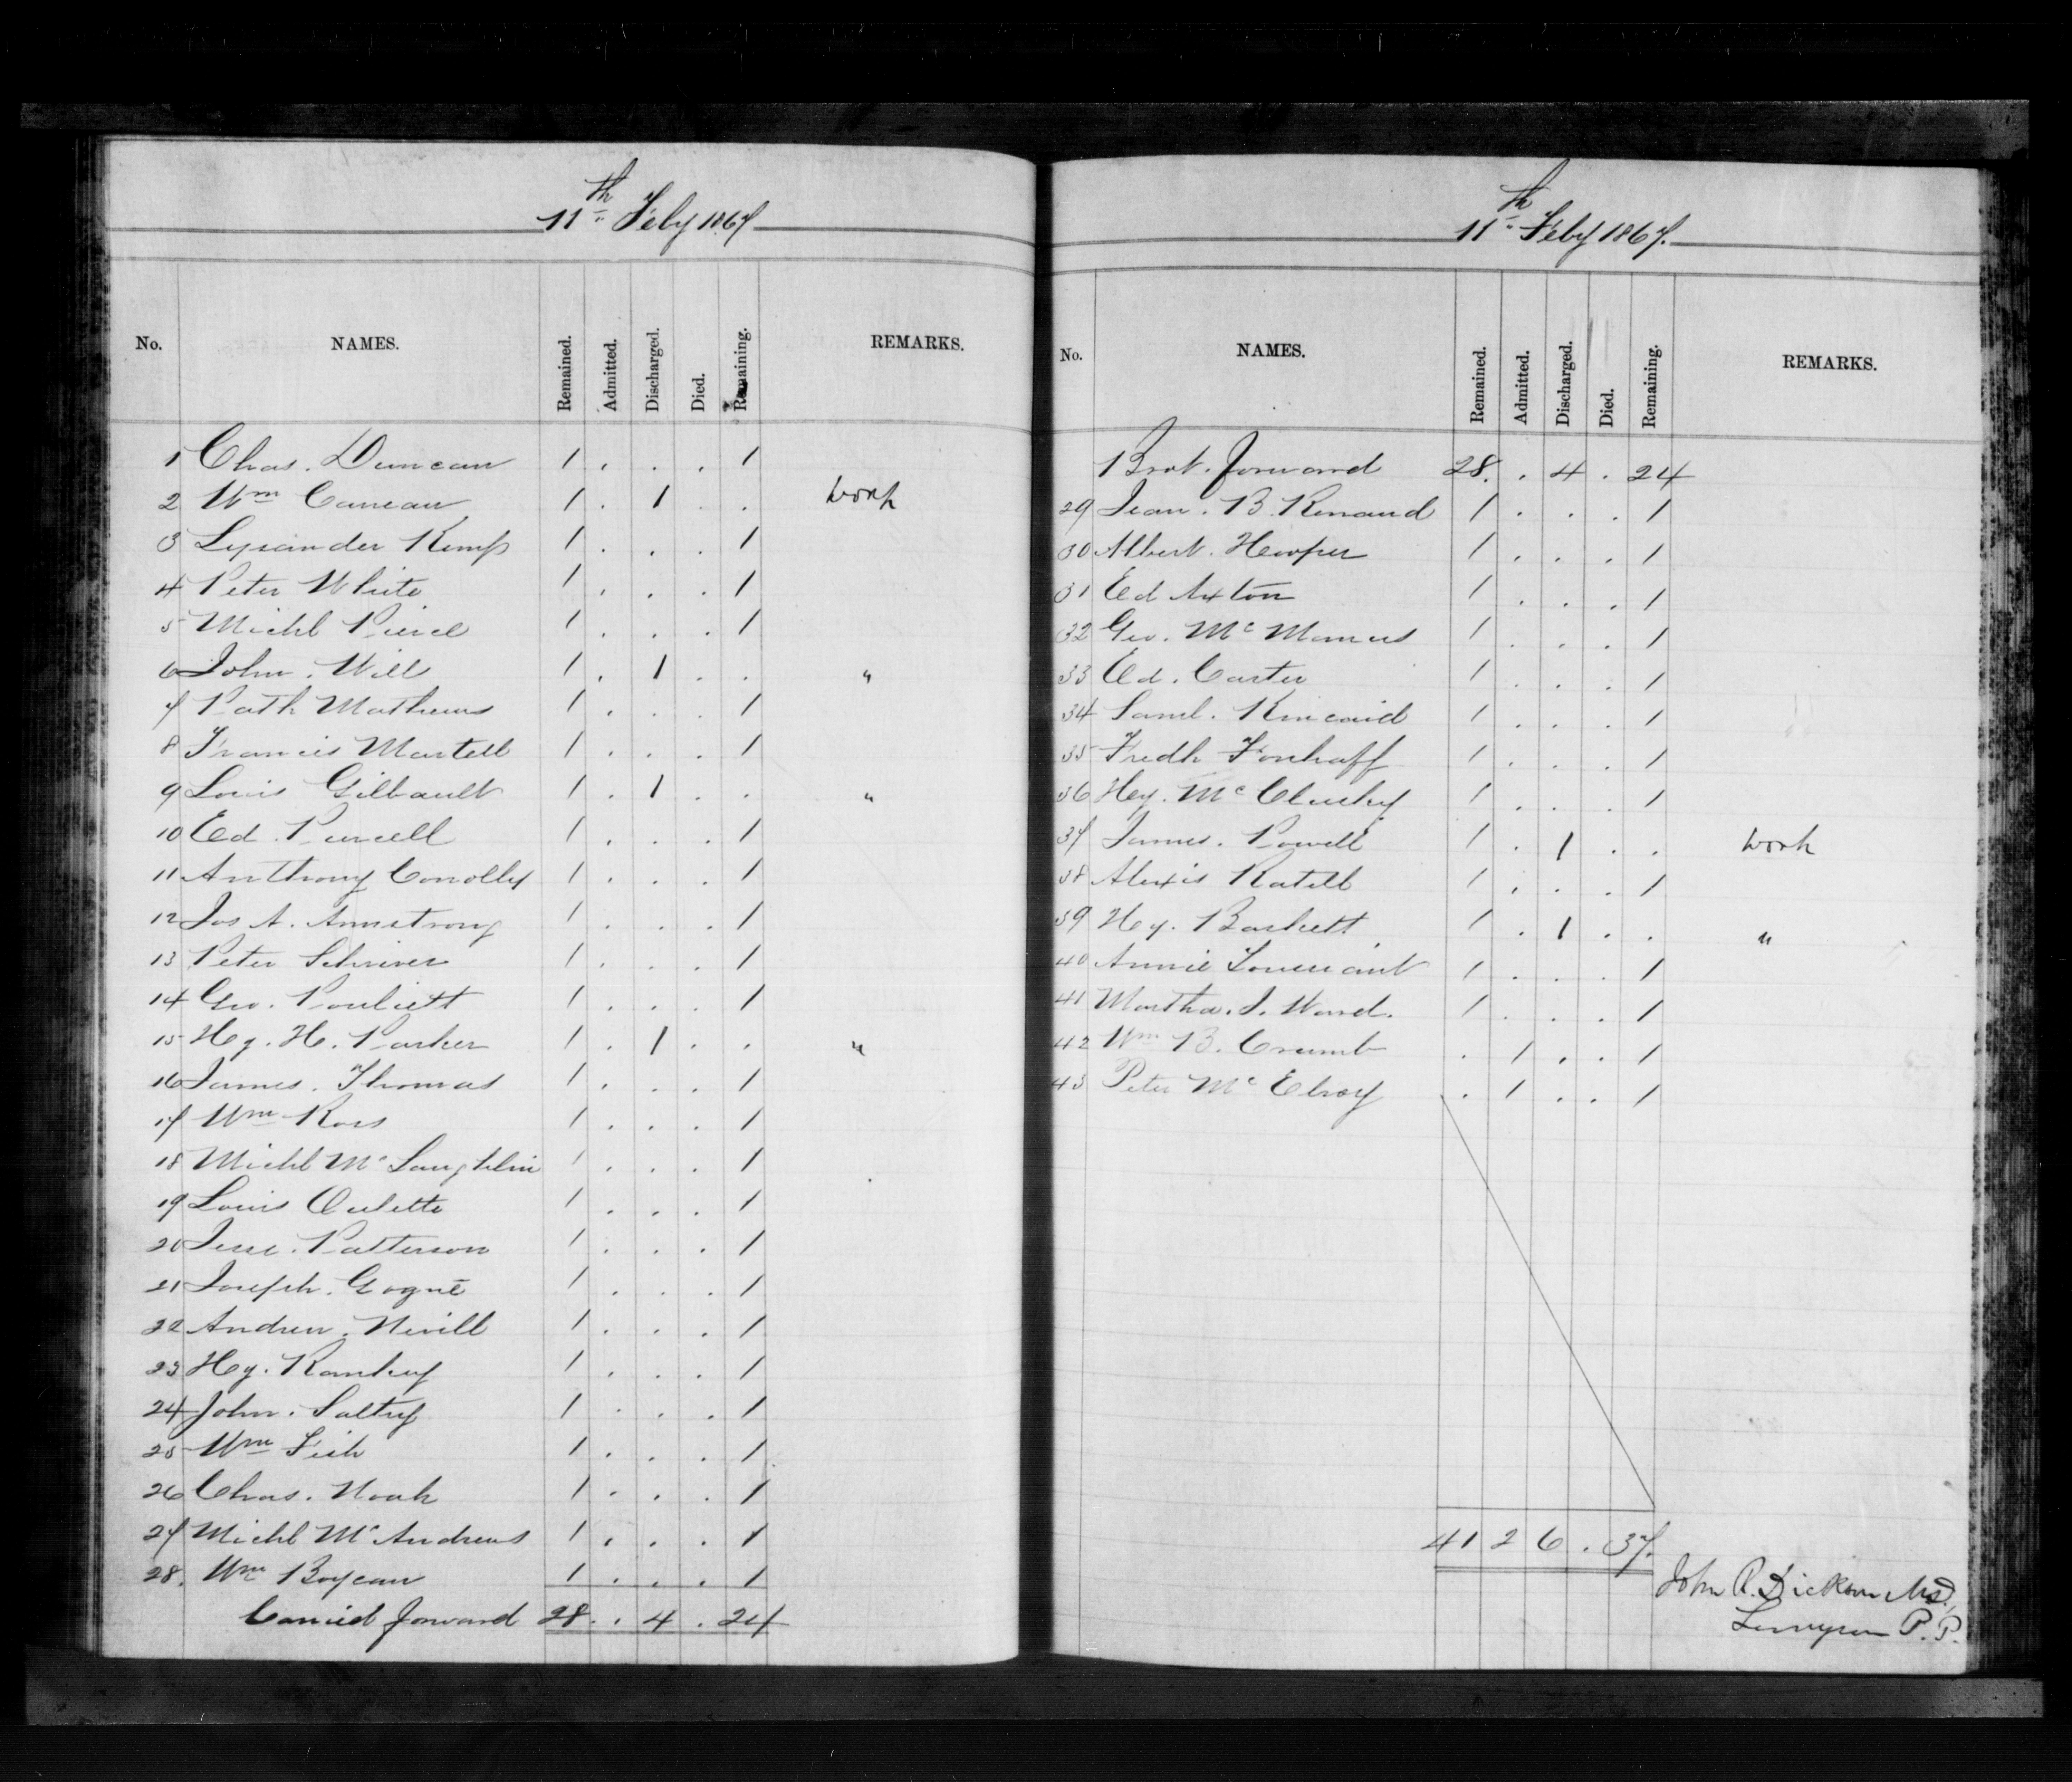 11th Feby 1867
No. NAMES. Remained. Admitted. Discharged. Died. Remaining. REMARKS.
1 Chas. Duncan 1 . . . 1
2 Wm Careau 1 . 1 . . work
3 Lysander Kemp 1 . . . 1
4 Peter White 1 . . . 1
5 Michl Pierce 1 . . . 1
6 John. Will 1 . 1 . . "
7 Patk Mathews 1 . . . 1
8 Francis Martell 1 . . . 1
9 Louis Gilbault 1 . 1 . . "
10 Ed. Purcell 1 . . . 1
11 Anthony Conolly 1 . . . 1
12 Jas A. Armstrong 1 . . . 1
13 Peter Schriver 1 . . . 1
14 Geo. Pouliett 1 . . . 1
15 Hy. H. Parker 1 . 1 . . "
16 James. Thomas 1 . . . 1
17 Wm Ross 1 . . . 1
18 Michl Mc Laughlin 1 . . . 1
19 Louis Oulette 1 . . . 1
20 Jesse. Patterson 1 . . . 1
21 Joseph. Gogné 1 . . . 1
22 Andrew. Nevill 1 . . . 1
23 Hy. Rankey 1 . . . 1
24 John. Saltry 1 . . . 1
25 Wm Fish 1 . . . 1
26 Chas. Noah 1 . . . 1
27 Michl Mc Andrews 1 . . . 1
28. Wm Boyeau 1 . . . 1
Carried forward 28 . . 4 . 24
11th Feby 1867.
No. NAMES. Remained. Admitted. Discharged. Died. Remaining. REMARKS.
Brot. forward 28. . 4 . 24
29 Jean. B. Renaud 1 . . . 1
30 Albert. Hooper 1 . . . 1
31 Ed Axton 1 . . . 1
32 Geo. Mc Manus 1 . . . 1
33 Ed. Carter 1 . . . 1
34 Saml. Kincaid 1 . . . 1
35 Fredk Fonhaff 1 . . . 1
36 Hy. Mc Clusky 1 . . . 1
37 James. Powell 1 . 1 . . work
38 Alexis Ratell 1 . . . 1
39 Hy. Baskett 1 . 1 . . "
40 Annie Toussaint 1 . . . 1
41 Martha. J. Ward. 1 . . . 1
42 Wm B. Crumb . 1 . . 1
43 Peter Mc Elroy . 1 . . 1
41 2 6 . 37.
John R. Dickson M.D.,
Surgeon P. P.